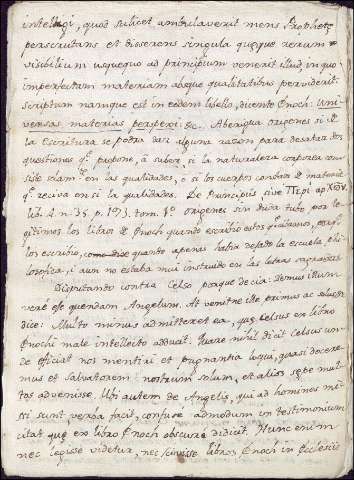 intelligi, quod scilicet ambulaverit mens Prophetæ
perscrutans et disserens singula quæque rerum
visibilium usquequo ad principium venerit illud, in quo
imperfectam materiam absque qualitatibus perviderit.
scriptum namque est in eodem libello, dicente Enoch: uni-
versas materias perspexi: &c. Aberigua origenes si de
la Escritura se podra dar alguna razon para desatar dos
questiones qe propone, à saber, si la naturaleza corporea con-
siste solamte en las qualidades, ò si los cuerpos constan de materia
qe reciva en si la qualidades. De Principiis sive Περι αρχων.
lib. 4. n. 35. p. 193. tom. 1º origenes sin duda tubo por le-
gitimos los libros de Enoch quando escribio estos
los escribio, quando apenas habia dejado la escuela phi-
losofica, i aun no estaba mui instruido en las letras sagradas.
Disputando contra Celso porque decia: Demus illum
verè esse quendam Angelum. At venit ne ille primus ac solus &c
dice: Multo minus admitteret ea, quæ Celsus en libro
Enochi male intellecto adduxit. Quare nihil dicit Celsus un-
de eficiat nos mentiri et pugnantia loqui, quasi docere-
mus et salvatorem nostrum solum, et alios sæpe mul-
tos advenisse. Ubi autem de Angelis, qui ad homines mi-
si sunt, verba facit, confuse admodum in testimonium
citat quæ en libro Enoch obscure didicit. Nunc enim
nec legisse videtur, nec scivisse libros Enoch in Ecclesiis